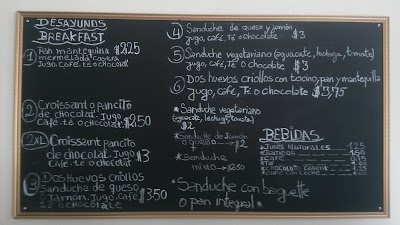 DESAYUNOS
BREAKFAST
1 Pan mantequilla $2.25
mermelada casera
Jugo. Café. te o chocolat.
2 Croissant o pancito
de chocolat. Jugo
Café. te o chocolat. $2.50
2XL Croissant, pancito
de chocolat. Jugo
Café. te o chocolat $3
3 Dos Huevos criollos
Sanduche de queso
y Jamon. Jugo. Café
te o chocolate $3.50
4 Sanduche de queso y jamón
Jugo, café, Té o chocolate $3
5 Sanduche vegetariano (aguacate, lechuga, tomate)
Jugo, café, Te o chocolate $3
6 Dos huevos criollos con tocino, pan y mantequilla
Jugo, café, Te o chocolate $3,75
*Sanduche vegetariano
(aguacate, lechuga, Tomate)
$2
*Sanduche de Jamón
+ queso → 2
*Sanduche
mixto → 2.50
*Sanduche con baguette
o pan integral *
BEBIDAS
*Jugos Naturales 1.25
*Batidos 1.50
*Café
*Té
*Chocolate caliente
*Café con Leche